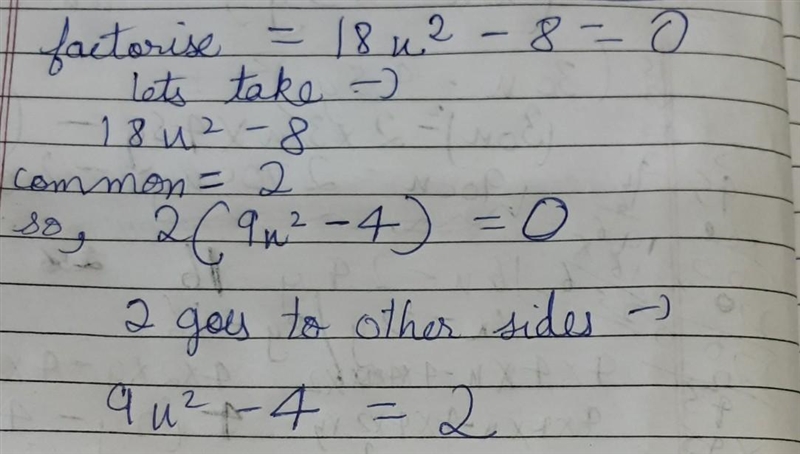 factorise = 18x² - 8 = 0
lets take →
18x² - 8
common = 2
so, 2(9x² - 4) = 0
2 goes to other sides →
9x² - 4 = 2